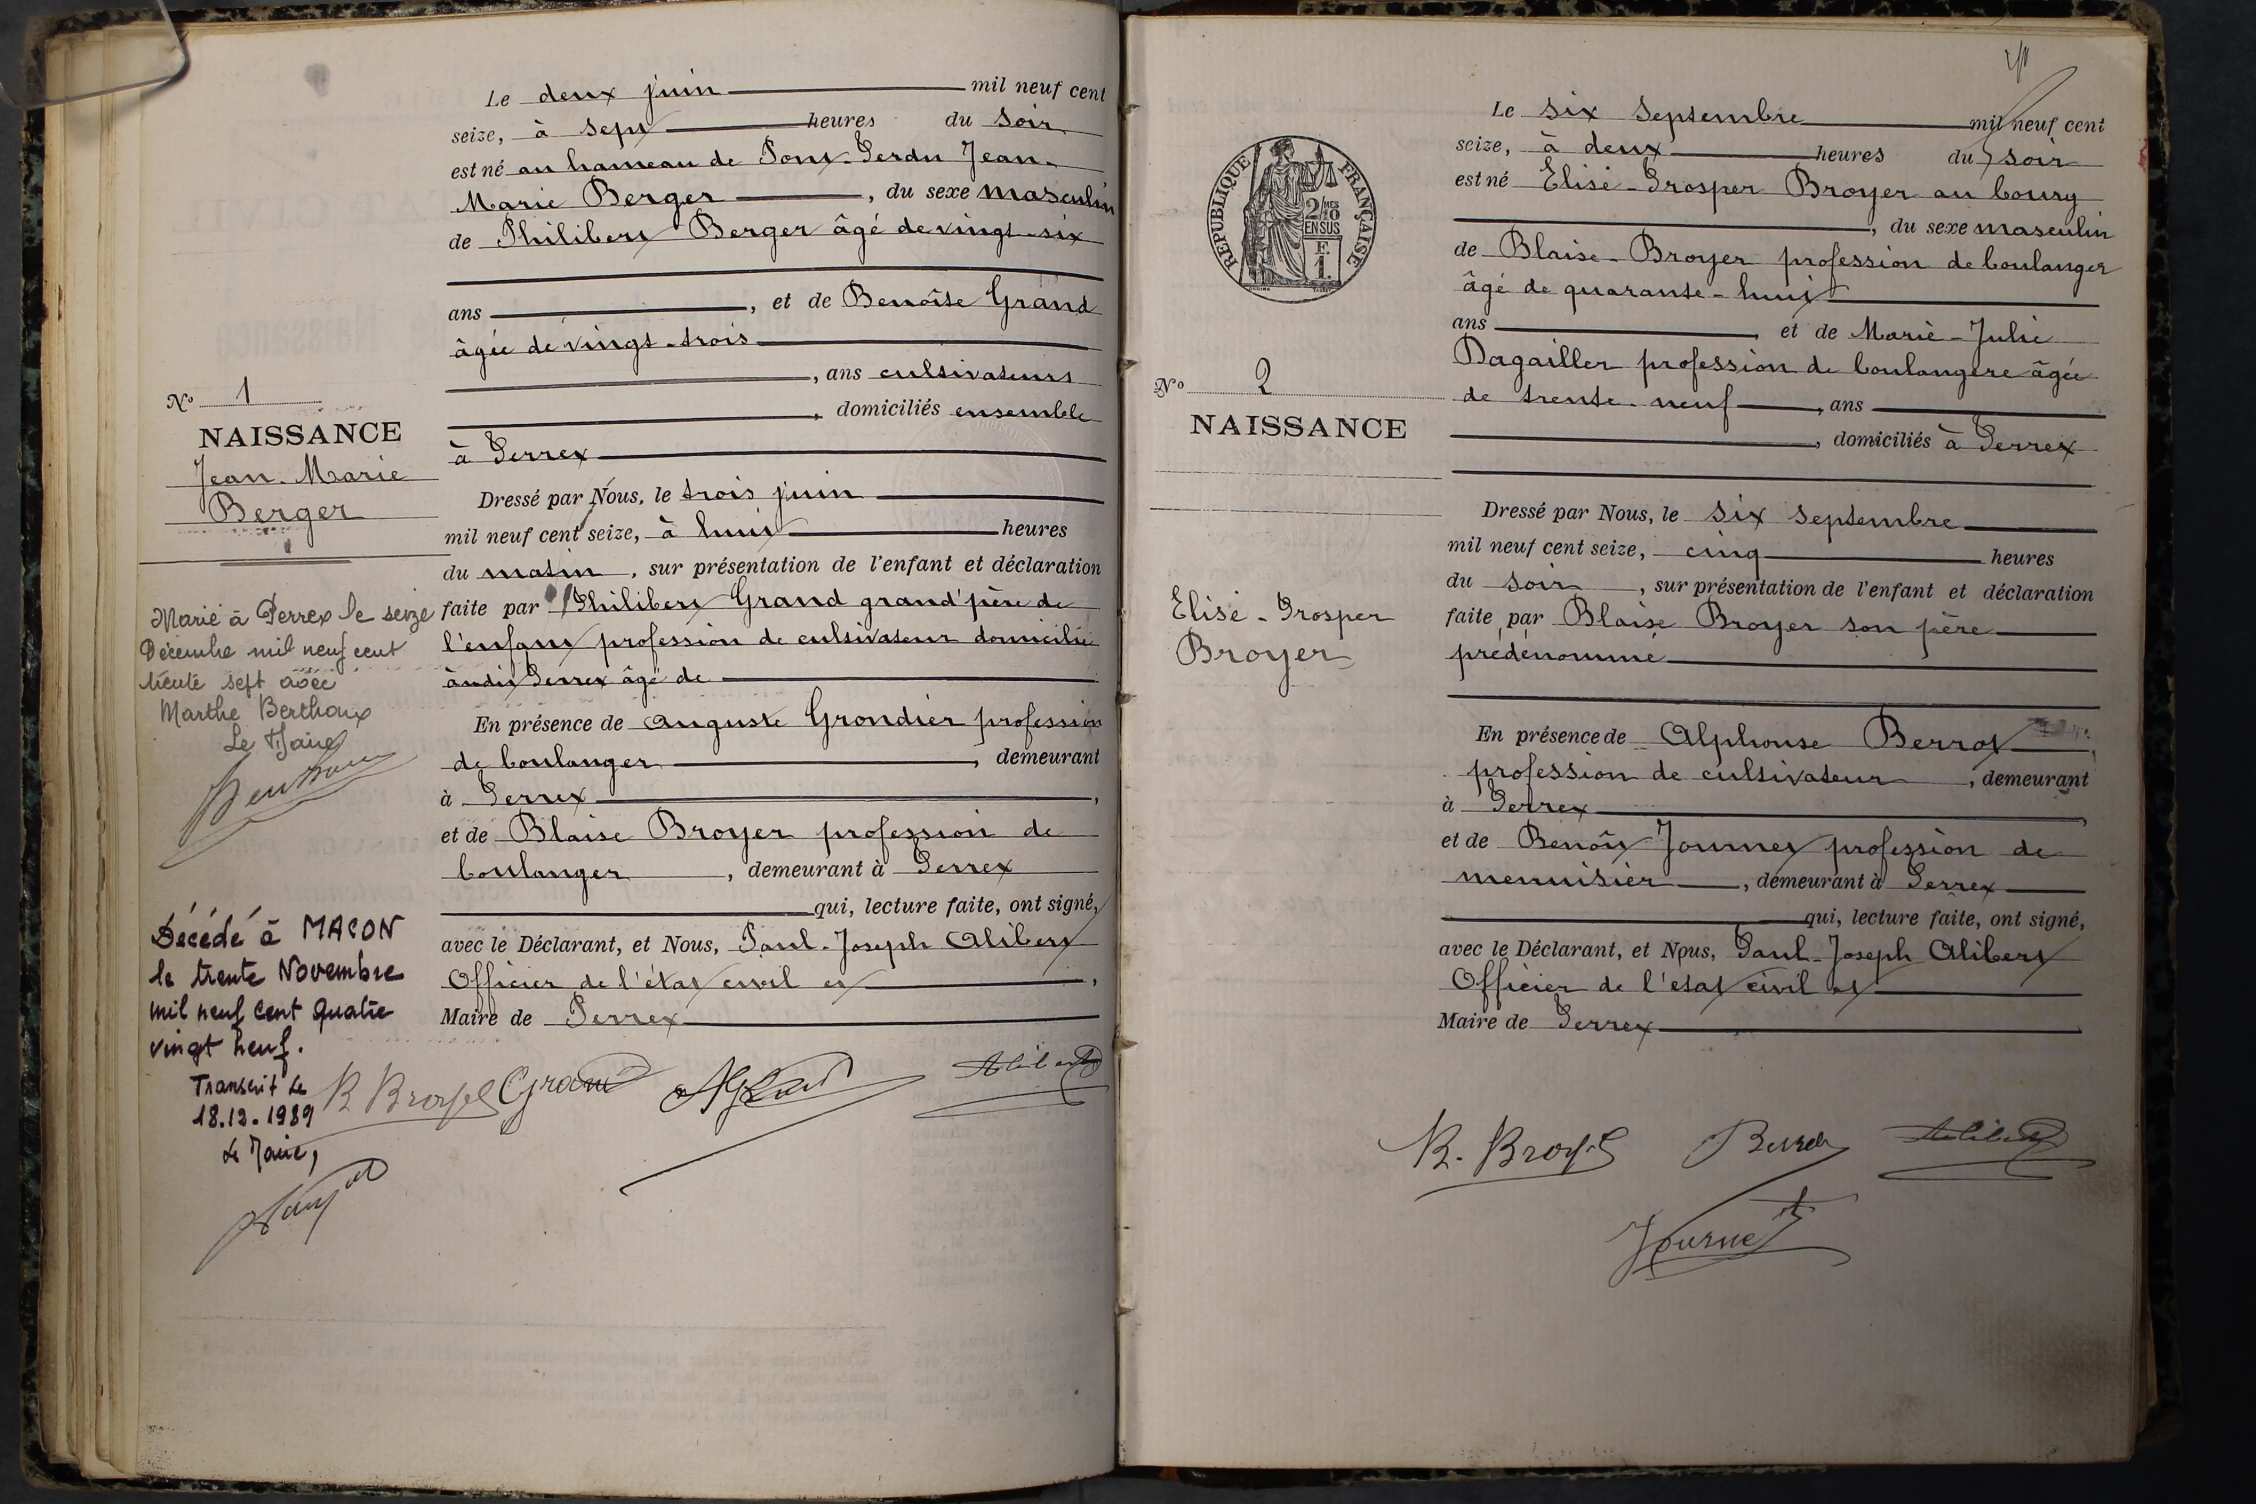 Le deux juin mil neuf cent
seize, à sept heures du soir
est né au hameau de Pont-Perdu Jean-
Marie Berger, du sexe masculin
de Philibert Berger âgé de vingt-six
ans, et de Benoîte Grand
âgée de vingt-trois
, ans cultivateurs
, domiciliés ensemble
à Perrex
Dressé par Nous, le trois juin
mil neuf cent seize, à huit heures
du matin, sur présentation de l'enfant et déclaration
faite par Philibert Grand grand'père de
l'enfant profession de cultivateur domicilié
audit Perrex âgé de
En présence de Auguste Grondier profession
de boulanger, demeurant
à Perrex,
et de Blaise Broyer profession de
boulanger, demeurant à Perrex
qui, lecture faite, ont signé,
avec le Déclarant, et Nous, Paul-Joseph Alibert
Officier de l'état civil et,
Maire de Perrex
B Broyer Grand Alibert
No 1
NAISSANCE
Jean-Marie
Berger
Marié à Perrex le seize
Décembre mil neuf cent
trente sept avec
Marthe Berthoux
Le Maire
Décédé à MACON
le trente Novembre
mil neuf cent quatre
vingt neuf.
Transcrit le
18.12.1989
Le Maire,
RÉPUBLIQUE FRANÇAISE
2/10MES
EN SUS
F.
1.
No 2
NAISSANCE
Elisé-Prosper
Broyer
Le six Septembre mil neuf cent
seize, à deux heures du soir
est né Elisé-Prosper Broyer au bourg
, du sexe masculin
de Blaise-Broyer profession de boulanger
âgé de quarante-huit
ans et de Marie-Julie
Dagailler profession de boulangère âgée
de trente-neuf, ans
, domiciliés à Perrex
Dressé par Nous, le six Septembre
mil neuf cent seize, cinq heures
du soir, sur présentation de l'enfant et déclaration
faite par Blaise Broyer son père
prédénommé
En présence de Alphonse Berrot,
profession de cultivateur, demeurant
à Perrex,
et de Benoît Journet profession de
menuisier, demeurant à Perrex
qui, lecture faite, ont signé,
avec le Déclarant, et Nous, Paul-Joseph Alibert
Officier de l'état civil et
Maire de Perrex
B. Broyer Alibert
Journet